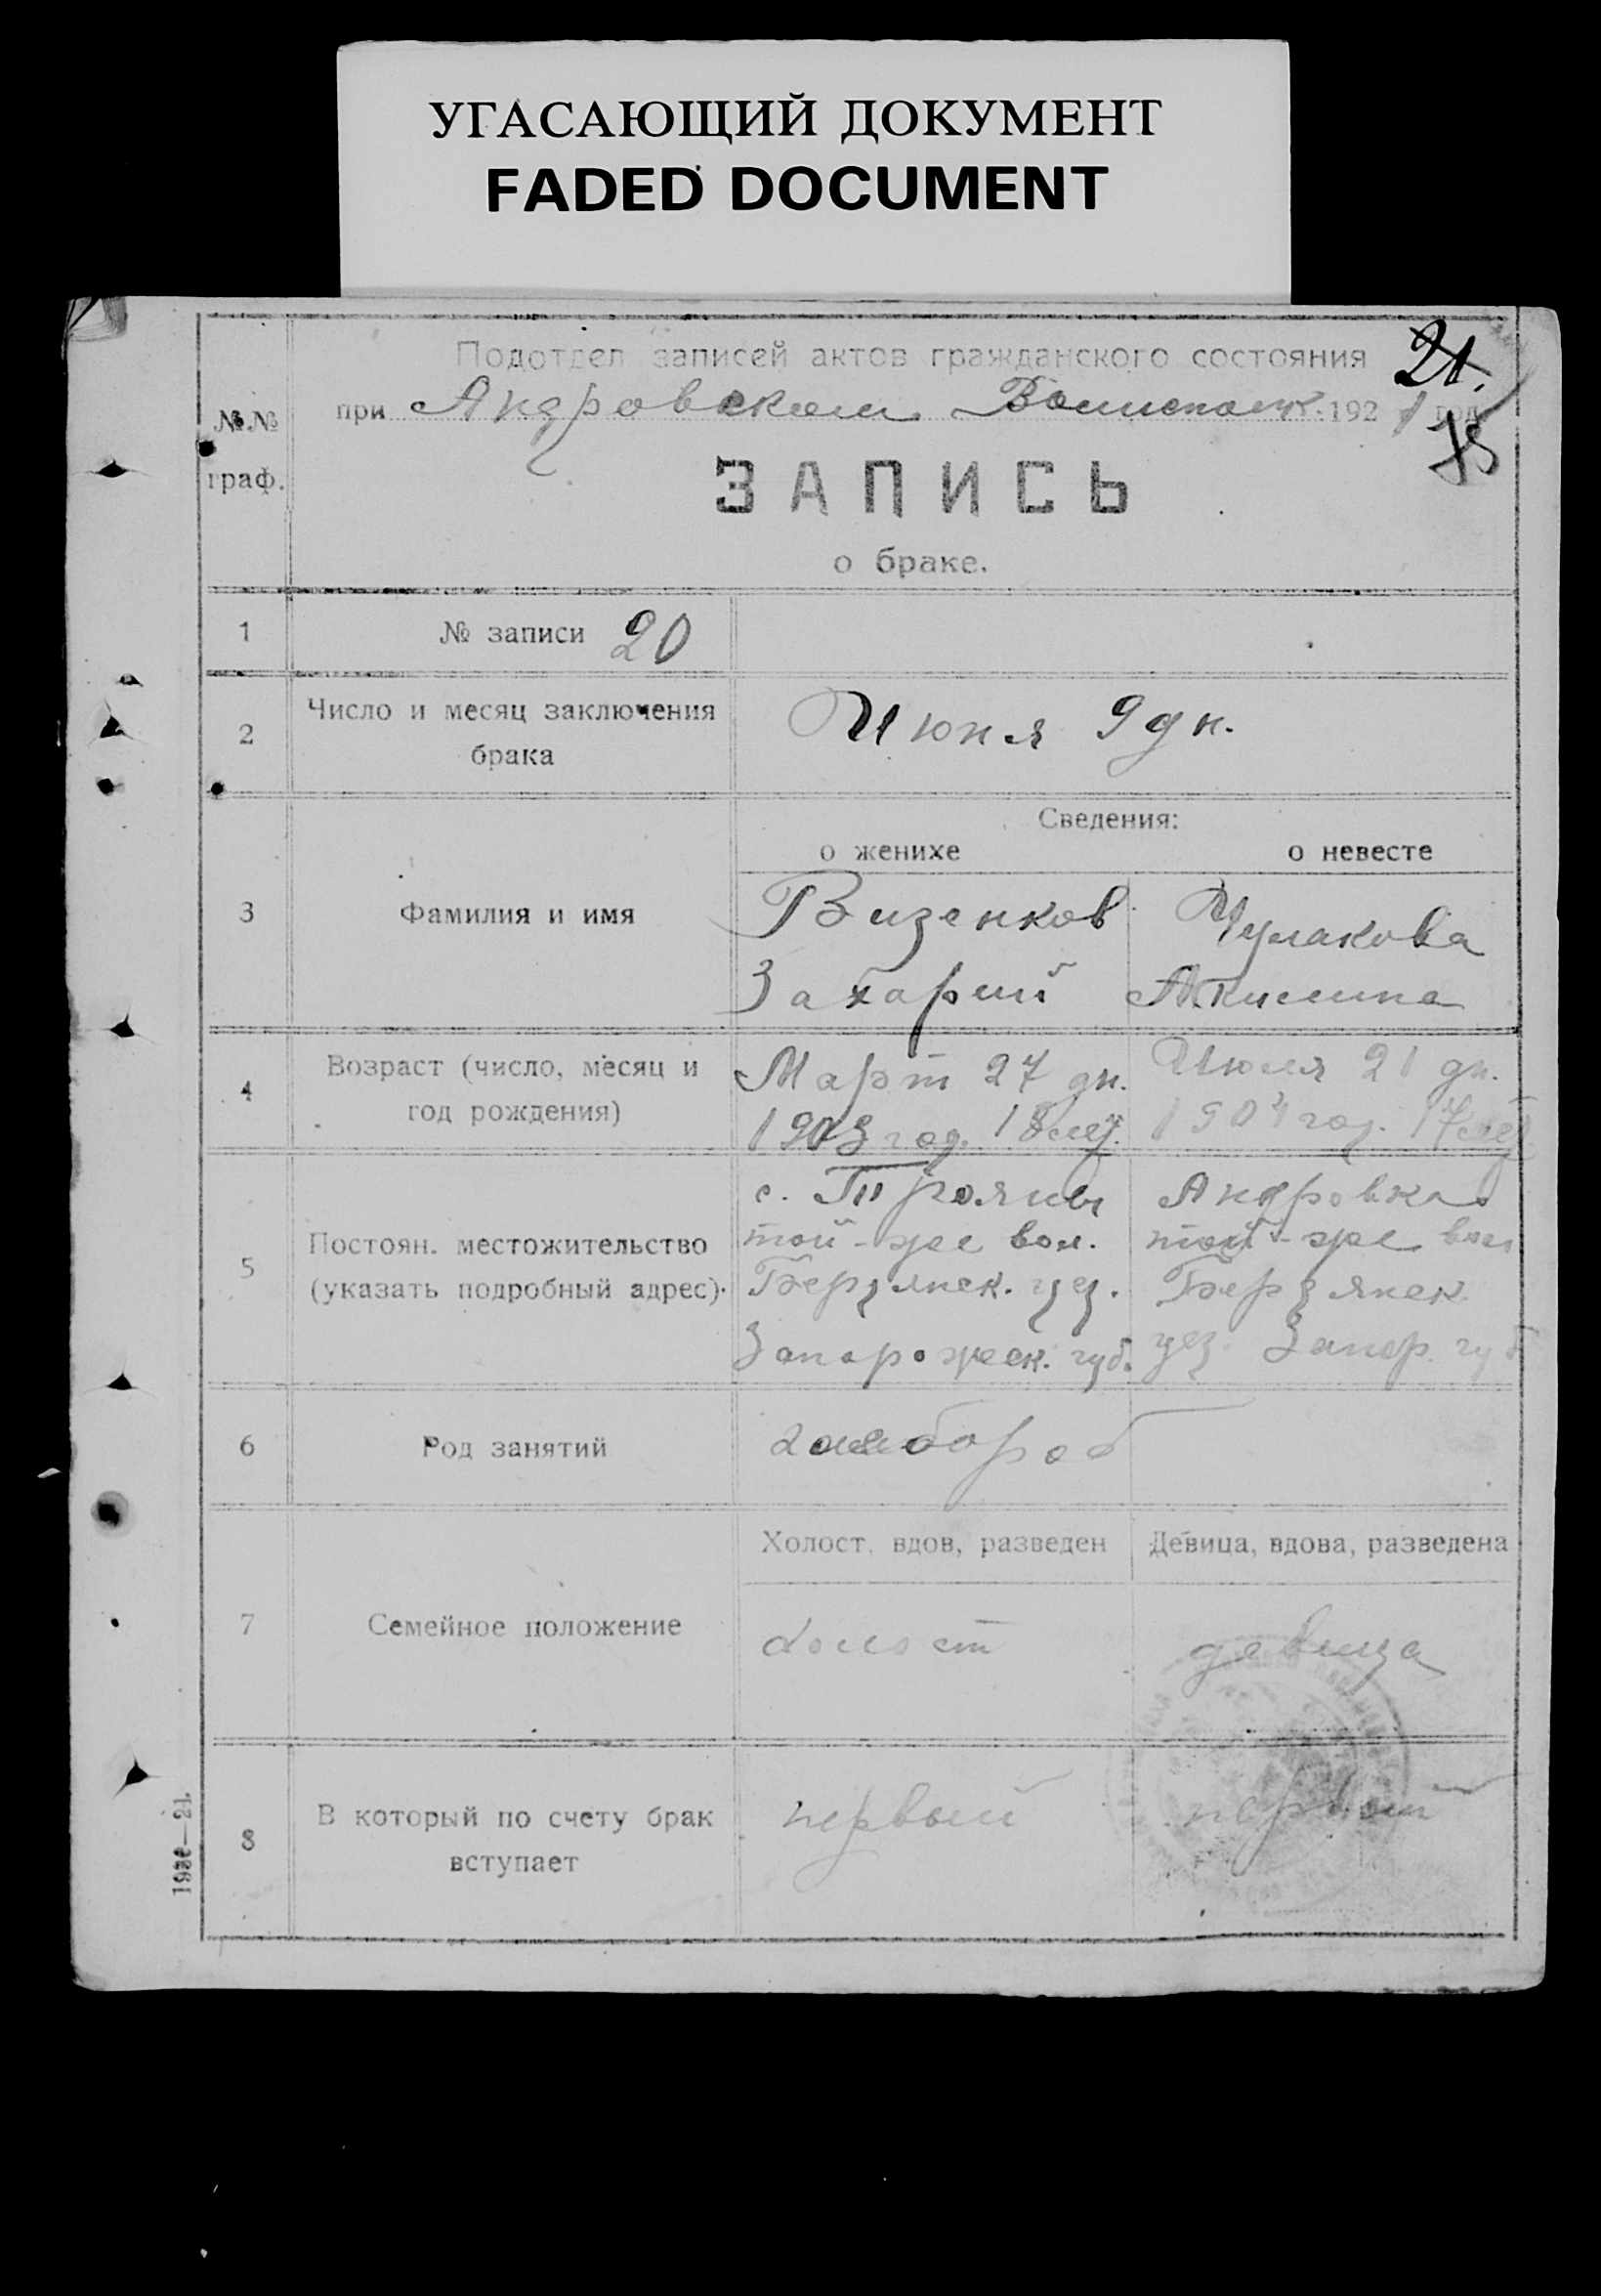 УГАСАЮЩИЙ ДОКУМЕНТ
FADED DOCUMENT
Подотдел записей актов гражданского состояния 21.
при Андровском Волисполк. 1921 год
75
№№ граф.
ЗАПИСЬ
о браке.
1 № записи 20
2 Число и месяц заключения брака
Июня 9 дн.
Сведения:
о женихе о невесте
3 Фамилия и имя
Визенков Чумакова
Захарий Акилина
4 Возраст (число, месяц и
год рождения)
Март 27 дн. Июля 21 дн.
1903 год. 18 лет. 1904 год. 17 лет
5 Постоян. местожительство
(указать подробный адрес).
с. Трояны Андровка
той-же вол. той-же вол
Бердянск. уез. Бердянск.
Запорожск. губ. уез. Запор. губ
6 Род занятий
хлебороб
Холост, вдов, разведен Девица, вдова, разведена
7 Семейное положение
холост девица
8 В который по счету брак
вступает
первый первый